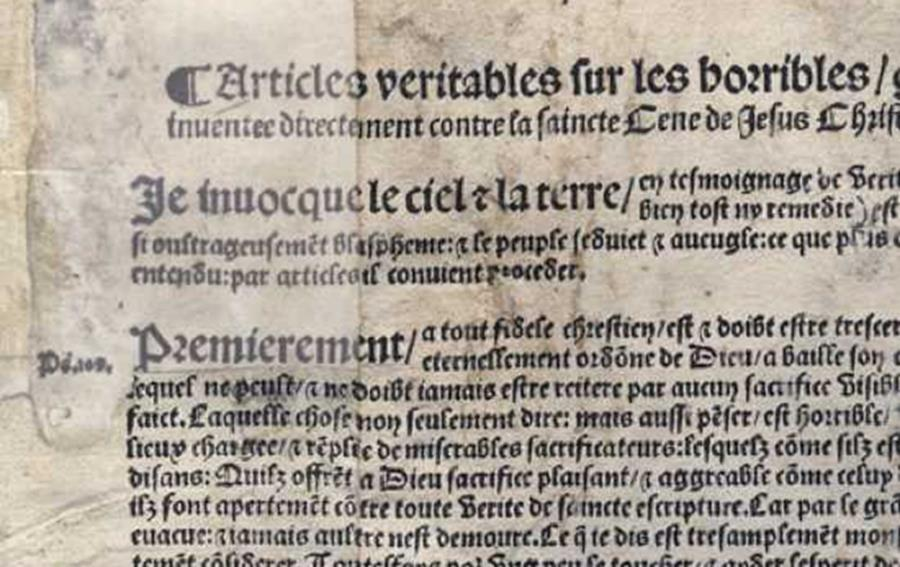 ¶ Articles veritables sur les horribles/ g
inuentee directement contre la saincte Cene de Jesus Christ
Je inuocque le ciel ⁊ la terre/ en tesmoignage de Verit
bien tost ny remedie) est
si oultrageusemēt blaspheme: ⁊ le peuple seduict ⁊ aueugle: ce que plus
entendu: par articles il conuient proceder.
Premierement/ a tout fidele chrestien/ est ⁊ doibt estre trescer
eternellement ordōne de Dieu/ a baille son
Ps. 109.
lequel ne peult/ ⁊ ne doibt iamais estre reitere par aucun sacrifice Visibl
faict. Laquelle chose non seulement dire: mais aussi pēser/ est horrible/
lieux chargee/ ⁊ rēplie de miserables sacrificateurs: lesquelz cōme silz est
disans: Quilz offrēt a Dieu sacrifice plaisant/ ⁊ aggreable cōme celuy d
ilz font apertemēt cōtre toute Verite de saincte escripture. Car par le grā
euacue: ⁊ iamais aultre nest demoure. Ce q̄ ie dis est tresamplemēt mons
temēt cōsiderer. Toutesfoys